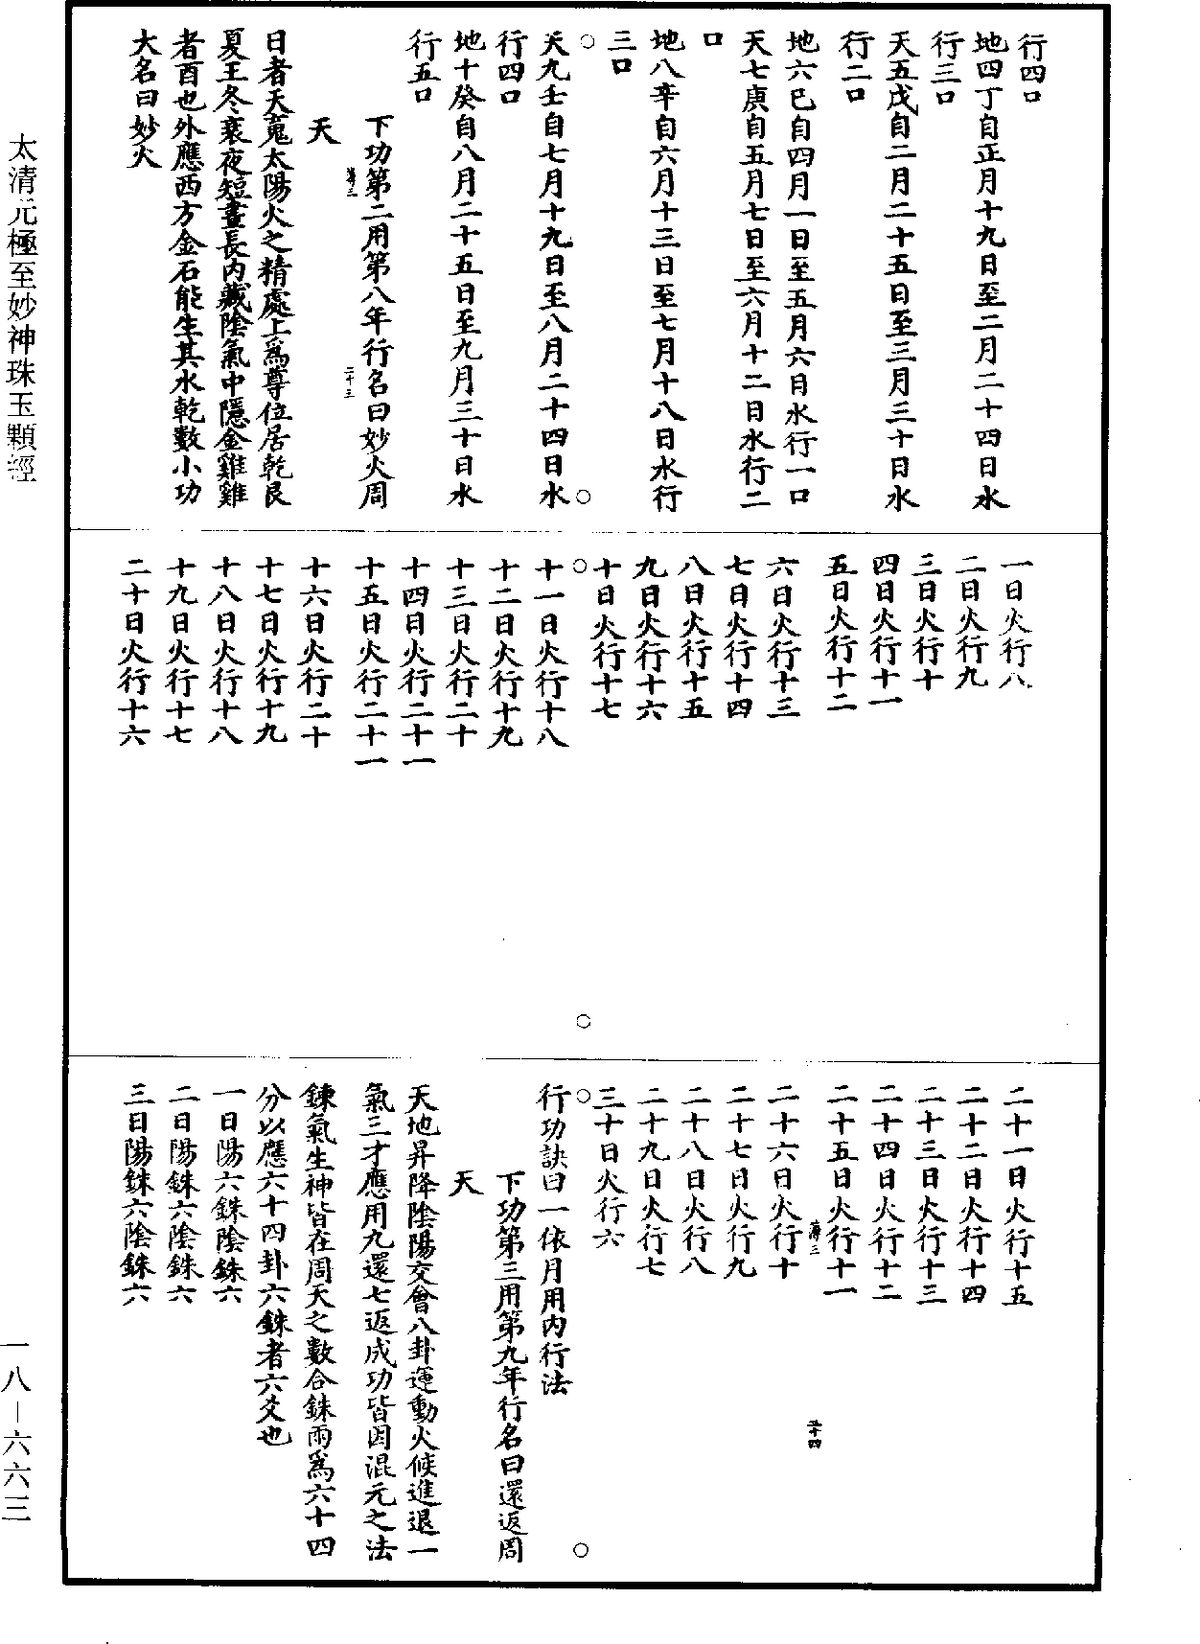 行四口
地四丁自正月十九日至二月二十四日水
行三口
天五戊自二月二十五日至三月三十日水
行二口
地六巳自四月一日至五月六日水行一口
天七庚自五月七日至六月十二日水行二
口
地八辛自六月十三日至七月十八日水行
三口
天九壬自七月十九日至八月二十四日水
行四口
地十癸自八月二十五日至九月三十日水
行五口
下功第二用第八年行名曰妙火周
海三 二十三
天
日者天䰟太陽火之精處上為尊位居乾艮
夏王冬衰夜短晝長内藏陰氣中隱金雞雞
者酉也外應西方金石能生其水乾數小功
大名曰妙火
一日火行八
二日火行九
三日火行十
四日火行十一
五日火行十二
六日火行十三
七日火行十四
八日火行十五
九日火行十六
十日火行十七
十一日火行十八
十二日火行十九
十三日火行二十
十四日火行二十一
十五日火行二十一
十六日火行二十
十七日火行十九
十八日火行十八
十九日火行十七
二十日火行十六
二十一日火行十五
二十二日火行十四
二十三日火行十三
二十四日火行十二
二十五日火行十一
海三 二十四
二十六日火行十
二十七日火行九
二十八日火行八
二十九日火行七
三十日火行六
行功訣曰一依月用内行法
下功第三用第九年行名曰還返周
天
天地昇降陰陽交會八卦運動火候進退一
氣三才應用九還七返成功皆因混元之法
鍊氣生神皆在周天之數合銖兩為六十四
分以應六十四卦六銖者六爻也
一日陽六銖陰銖六
二日陽銖六陰銖六
三日陽銖六陰銖六
太清元極至妙神珠玉顆經
一八—六六三